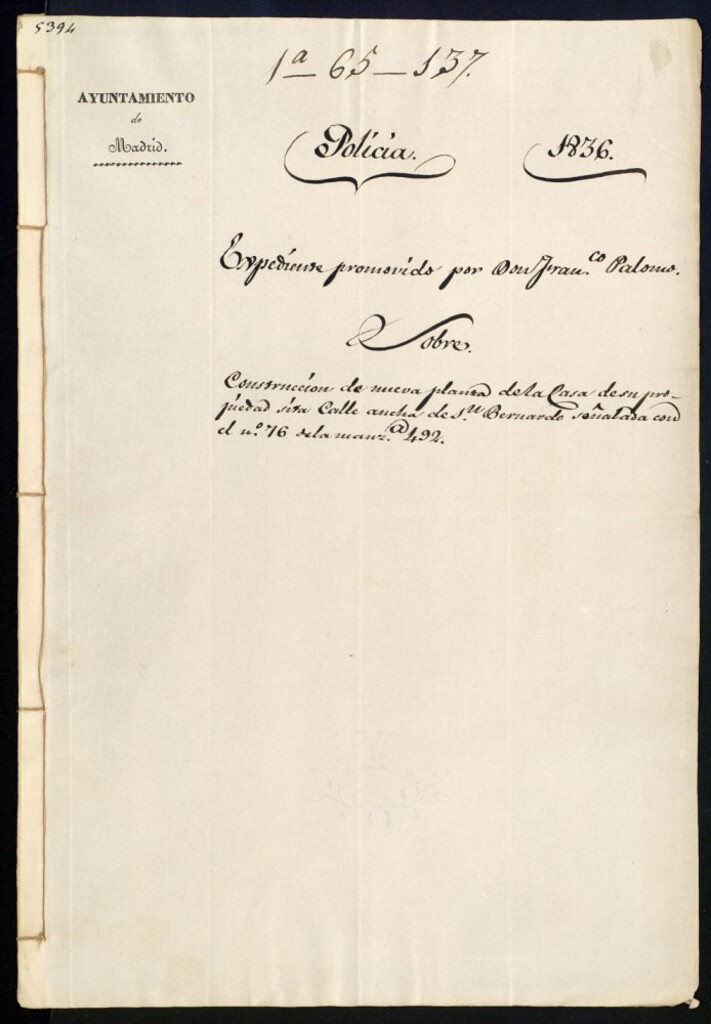 5394
1ª - 65 - 137.
AYUNTAMIENTO
de
Madrid.
Policia.
1836.
Expediente promovido por Don Fran.co Palomo.
Sobre.
Construccion de nueva planta de la Casa de su pro-
piedad sita Calle ancha de S.n Bernardo señalada con
el n.º 76 de la manz.a 492.